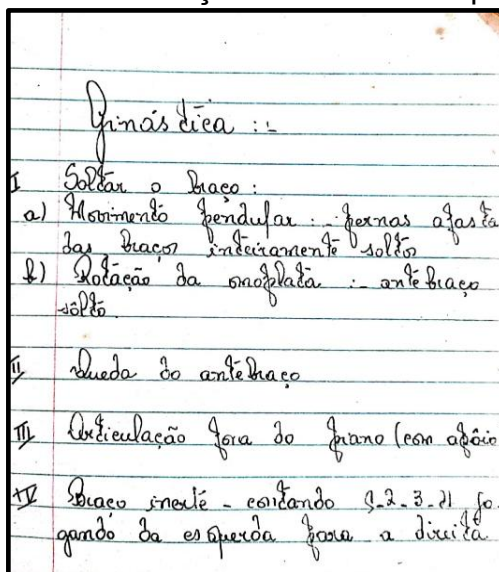 Ginástica :-
I Soltar o braço :
a) Movimento pendular :- pernas afasta
das braços inteiramente soltos
b) Rotação da omoplata :- antebraço
sôlto.
II Queda do antebraço
III Articulação fora do piano (com apôio
IV Braço inerte - contando 1-2-3-4 jo
gando da esquerda para a direita